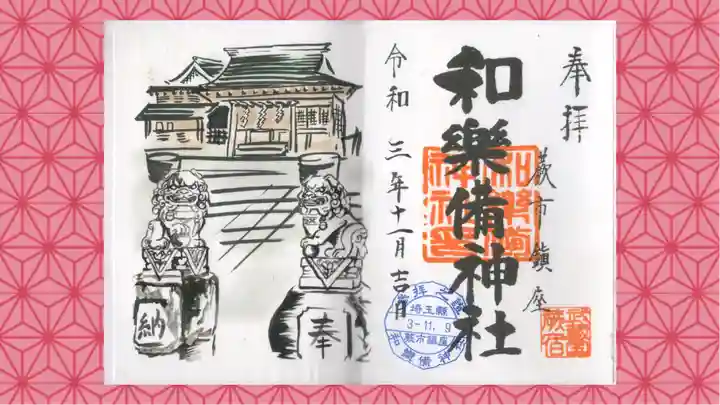 奉拝
蕨市鎮座
和樂備神社
令和三年十一月吉日
埼玉縣
3-11.9
蕨市鎮座
和樂備神社
蕨宿
奉
納